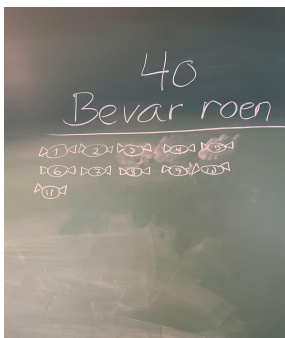 40
Bevar roen
1 2 3 4 5
6 7 8 9 10
11